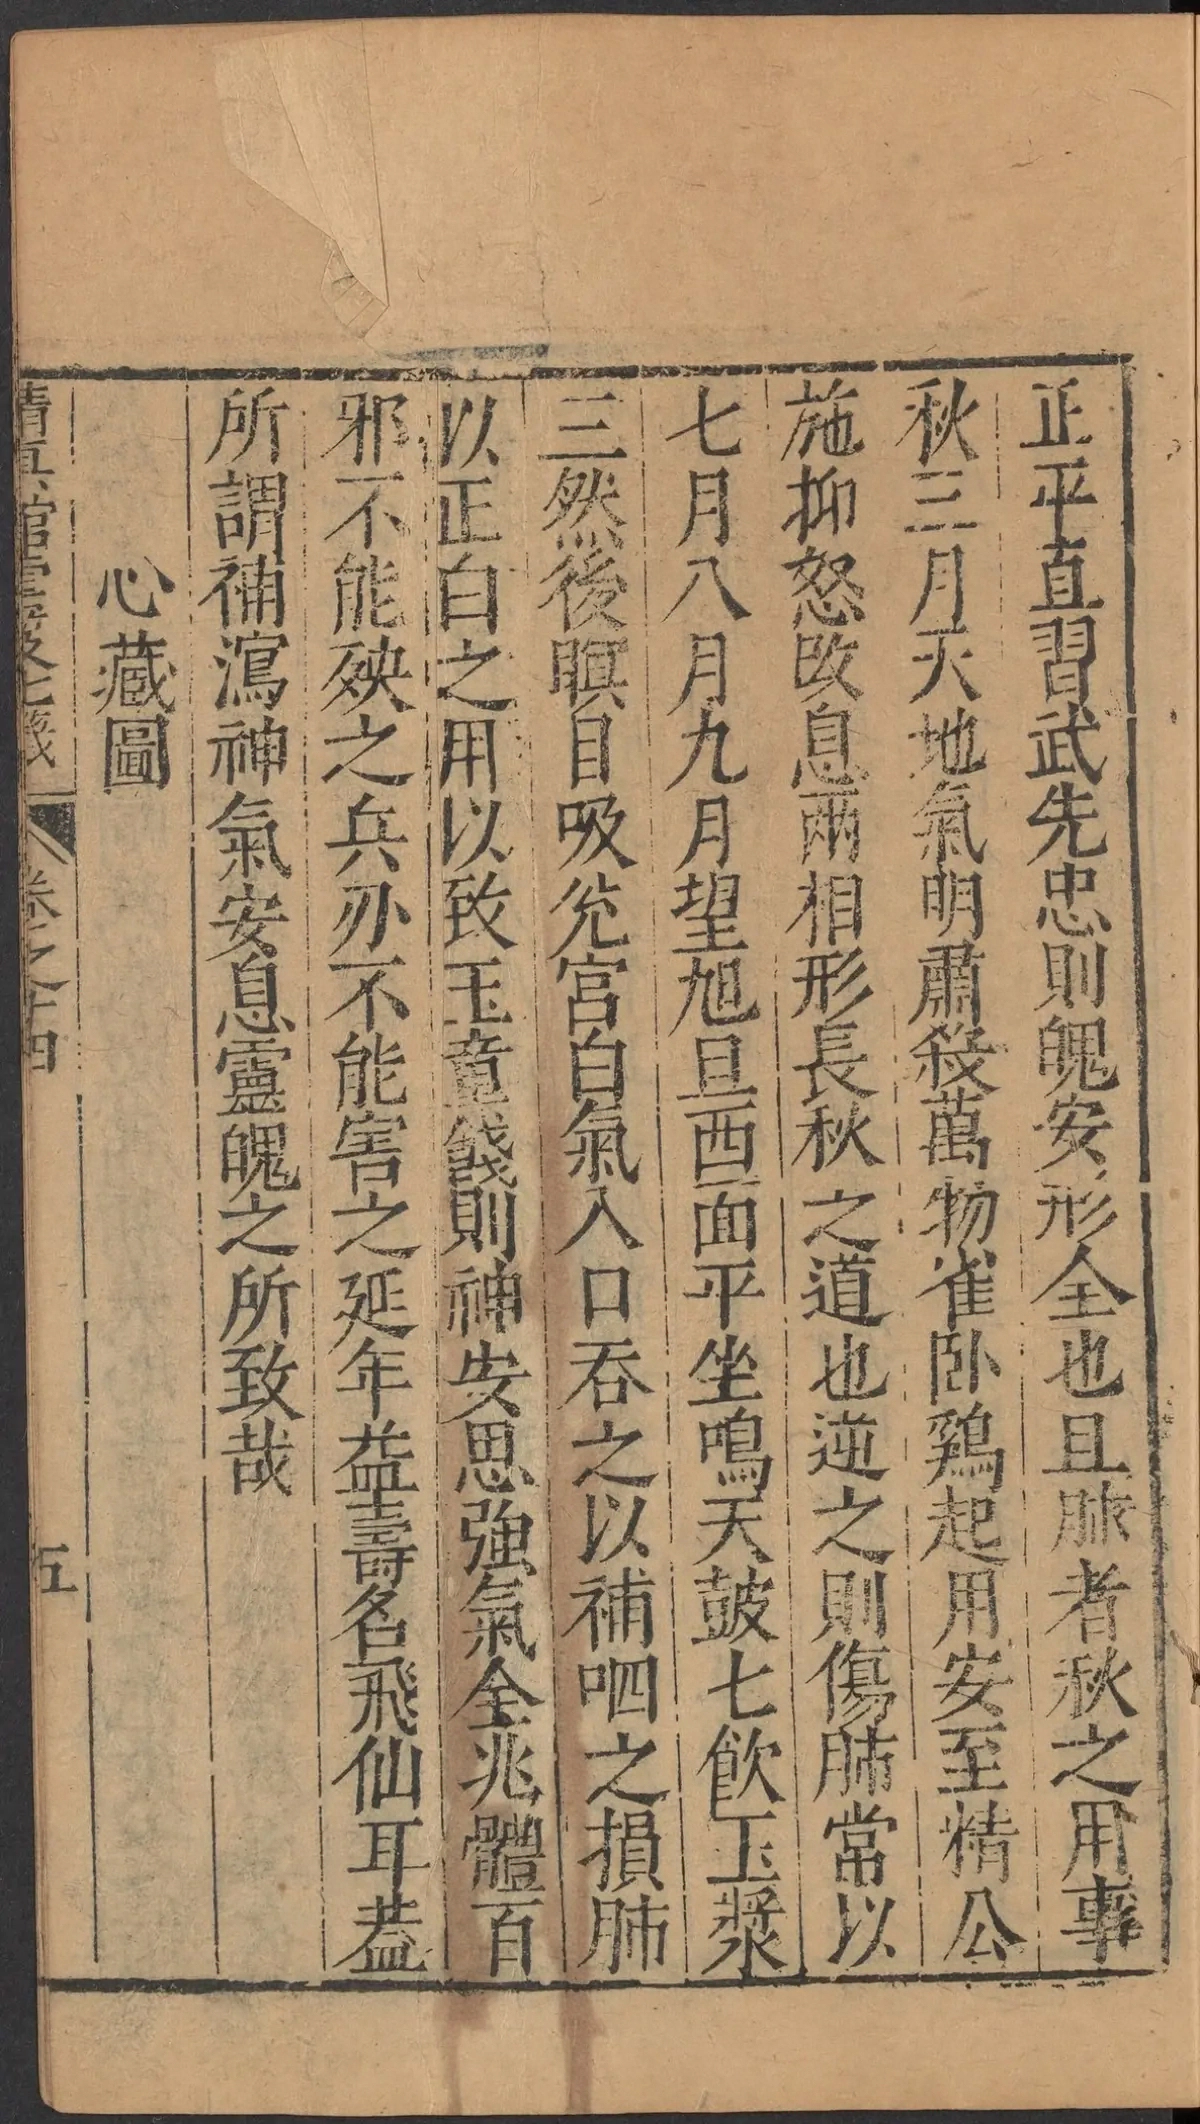 正平直習武先忠則魄安形全也且脈者秋之用事
秋三月天地氣明肅殺萬物雀卧鷄起用安至精公
施抑怒攺息兩相形長秋之道也逆之則傷肺常以
七月八月九月望旭旦西面平坐鳴天皷七飲玉漿
三然後瞑目吸兊宮白氣入口吞之以補呬之損肺
以正白之用以致玉童餞則神安思強氣全兆體百
邪不能殃之兵刅不能害之延年益壽名飛仙耳葢
所謂補瀉神氣安息靈魄之所致哉
心藏圖
卷之十四
五